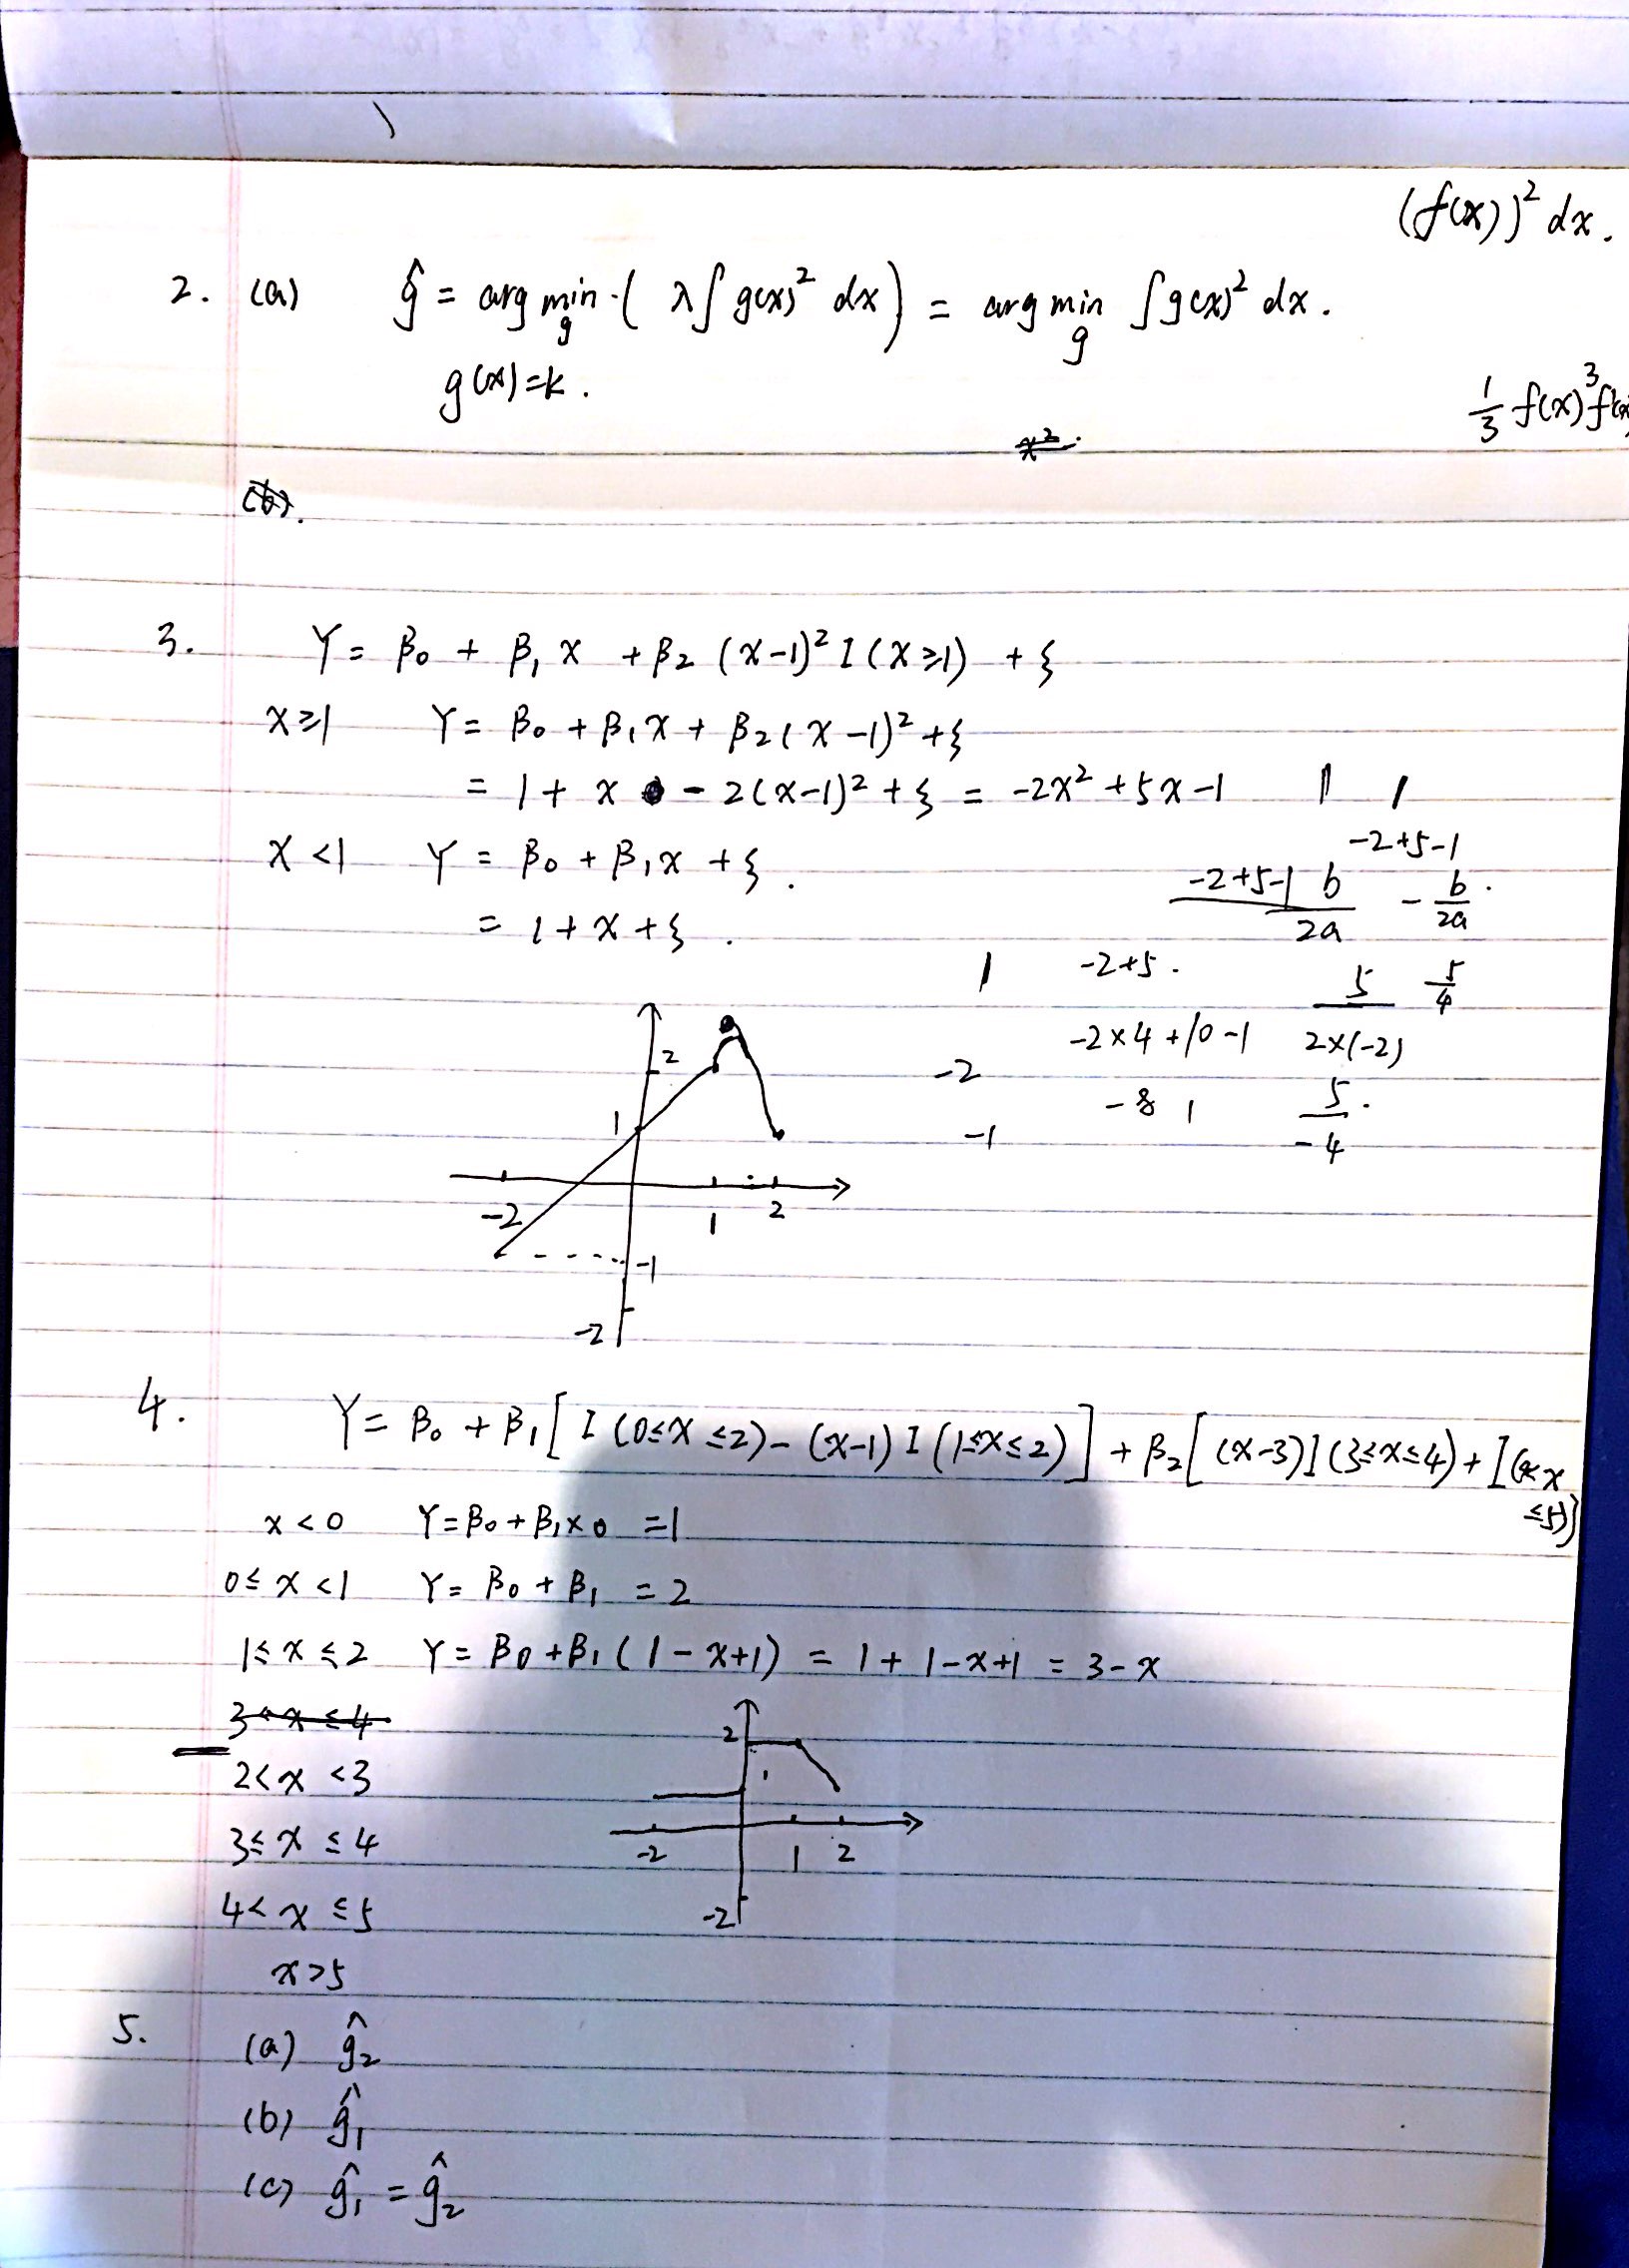 (f(x))² dx.
2. (a) ĝ = arg min_g ( λ∫ g(x)² dx ) = arg min_g ∫g(x)² dx.
g(x)=k.
1/3 f(x)³ f'(x)
x².
(b).
3. Y = β₀ + β₁ X + β₂ (X-1)² I(X≥1) + ξ
X≥1 Y = β₀ + β₁X + β₂(X-1)² + ξ
= 1 + X - 2(X-1)² + ξ = -2X² + 5X - 1 1 1
-2+5-1
X<1 Y = β₀ + β₁X + ξ.
-2+5-1 b/2a - b/2a.
= 1 + X + ξ.
1 -2+5. 5/2×(-2) 5/4
-2×4+10-1
-2
-8 1 5/-4.
-1
2
1
-2 1 2
-1
-2
4. Y = β₀ + β₁[ I(0≤X≤2) - (X-1) I(1≤X≤2) ] + β₂[ (X-3) I(3≤X≤4) + I(4<X
≤5)]
x<0 Y = β₀ + β₁×0 = 1
0≤X<1 Y = β₀ + β₁ = 2
1≤X≤2 Y = β₀ + β₁(1-X+1) = 1+1-X+1 = 3-X
3<X≤4
2<X<3
3≤X≤4
4<X≤5
x>5
2
1
-2 1 2
-2
5. (a) ĝ₂
(b) ĝ₁
(c) ĝ₁ = ĝ₂